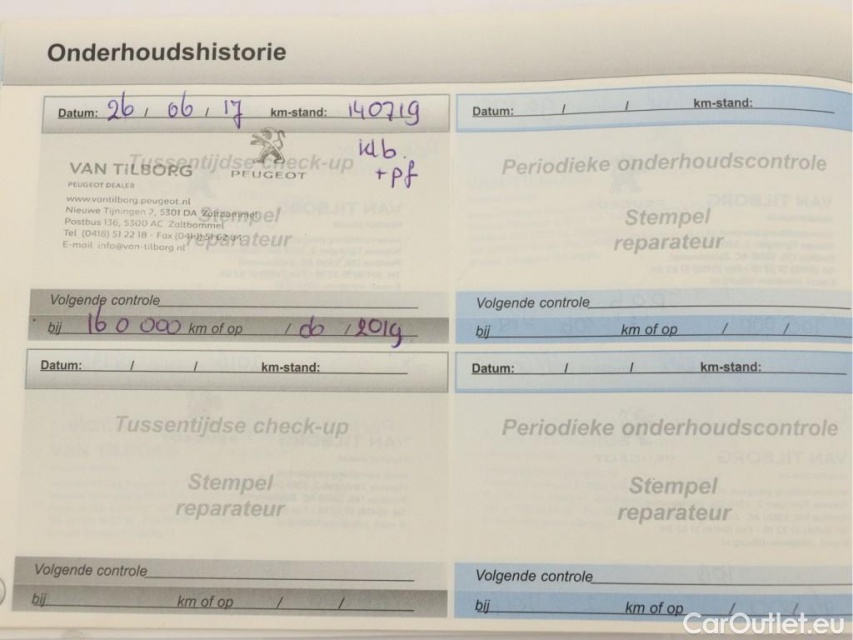 Onderhoudshistorie
Datum: 26 / 06 / 17 km-stand: 140719
Tussentijdse check-up
VAN TILBORG
PEUGEOT DEALER
PEUGEOT
+ pf
www.vantilborg.peugeot.nl
Nieuwe Tijningen 2, 5301 DA Zaltbommel
Postbus 136, 5300 AC Zaltbommel
Tel. (0418) 51 22 18 - Fax
E-mail info@van-tilborg.nl
Stempel
reparateur
Volgende controle
bij 160 000 km of op / 06 / 2019
Datum: / / km-stand:
Periodieke onderhoudscontrole
Stempel
reparateur
Volgende controle
bij km of op / /
Datum: / / km-stand:
Tussentijdse check-up
Stempel
reparateur
Volgende controle
bij km of op / /
Datum: / / km-stand:
Periodieke onderhoudscontrole
Stempel
reparateur
Volgende controle
bij km of op / /
CarOutlet.eu